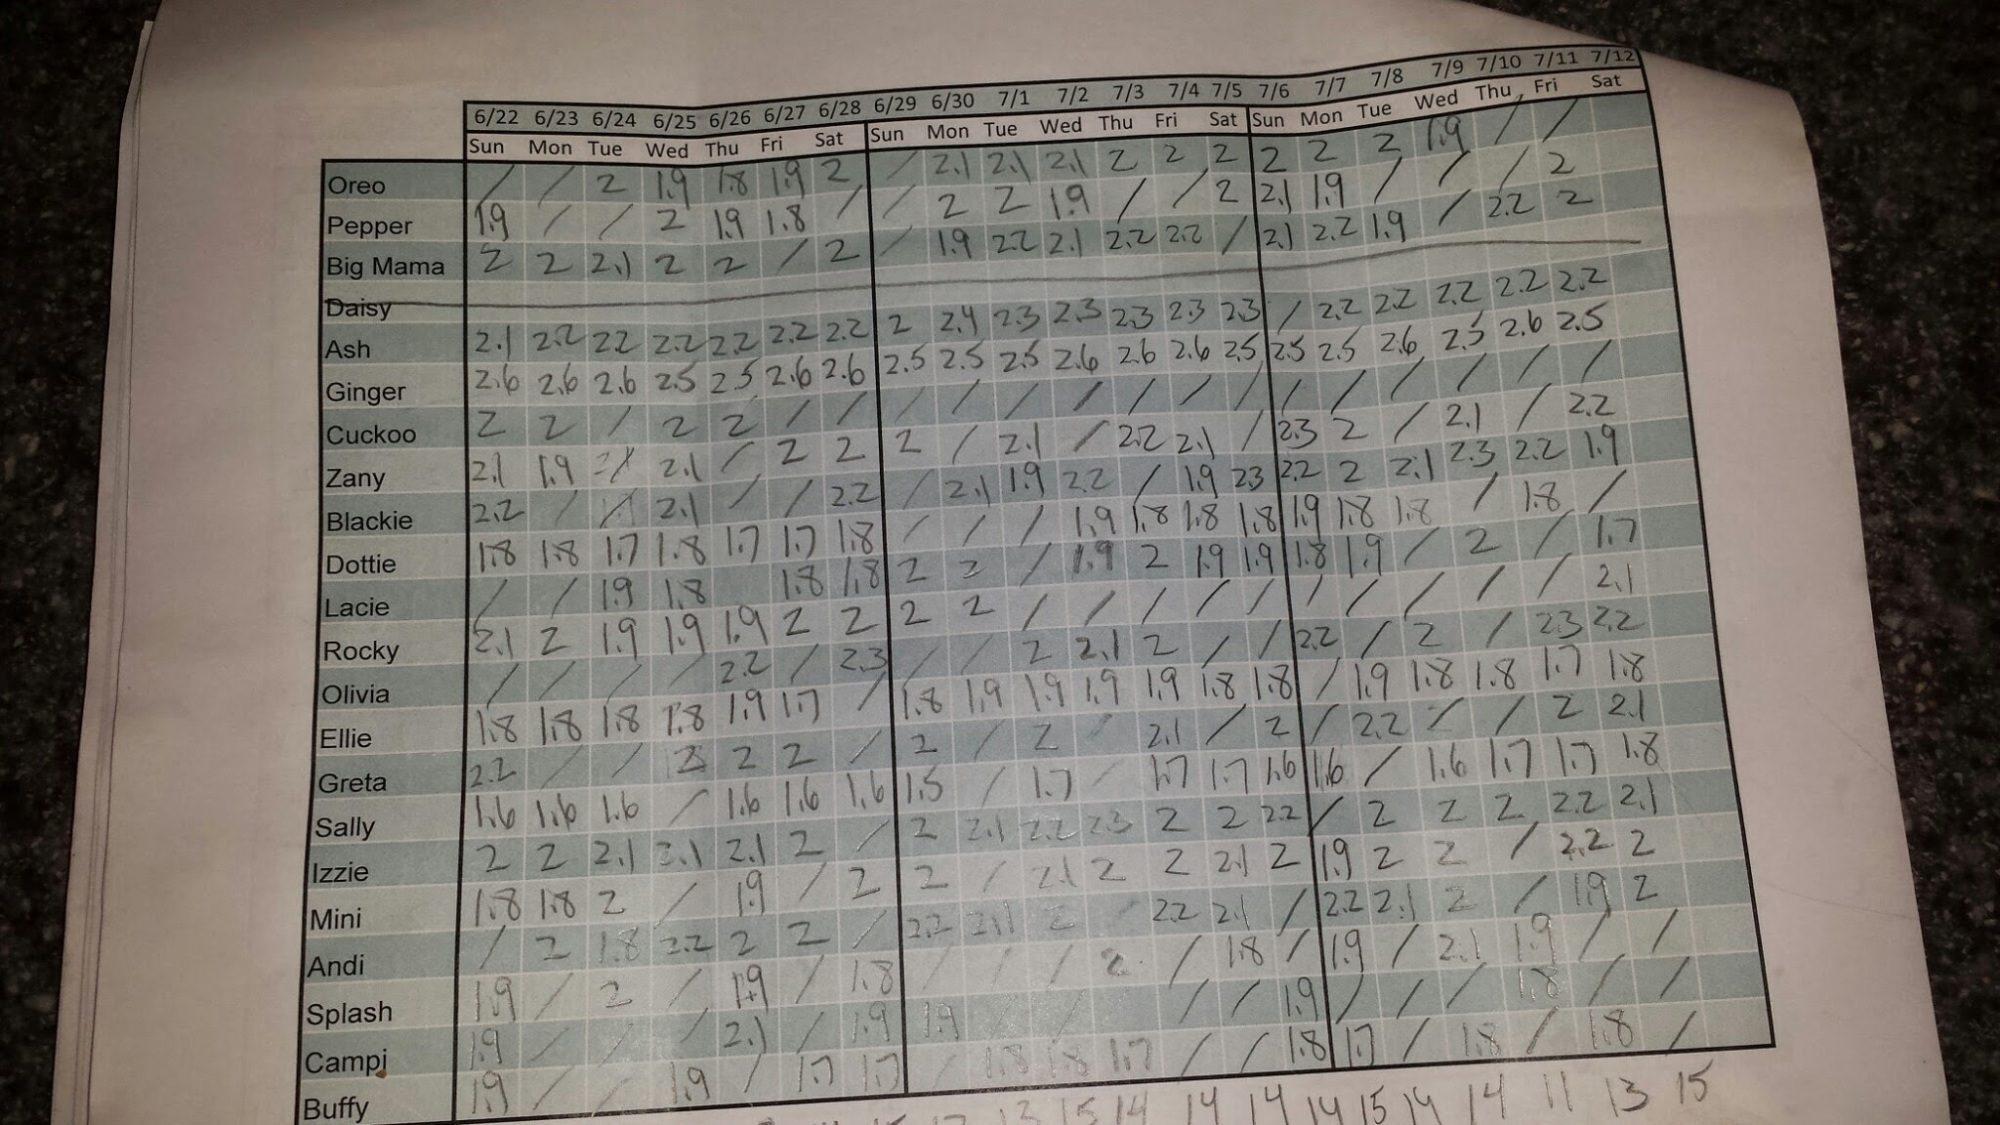 6/22 6/23 6/24 6/25 6/26 6/27 6/28 6/29 6/30 7/1 7/2 7/3 7/4 7/5 7/6 7/7 7/8 7/9 7/10 7/11 7/12
Sun Mon Tue Wed Thu Fri Sat Sun Mon Tue Wed Thu Fri Sat Sun Mon Tue Wed Thu Fri Sat
Oreo / / 2 1.9 1.8 1.9 2 / 2.1 2.1 2.1 2 2 2 2 2 2 1.9 / /
Pepper 1.9 / / 2 1.9 1.8 / / 2 2 1.9 / / 2 2.1 1.9 / / / 2
Big Mama 2 2 2.1 2 2 / 2 / 1.9 2.2 2.1 2.2 2.2 / 2.1 2.2 1.9 / 2.2 2
Daisy
Ash 2.1 2.2 22 2.2 2.2 2.2 2.2 2 2.4 2.3 2.3 2.3 2.3 2.3 / 2.2 2.2 2.2 2.2 2.2
Ginger 2.6 2.6 2.6 2.5 2.5 2.6 2.6 2.5 2.5 2.5 2.6 2.6 2.6 2.5 2.5 2.5 2.6 2.5 2.6 2.5
Cuckoo 2 2 / 2 2 / / / / / / / / / / / / / / /
Zany 2.1 1.9 2.1 / 2 2 2 / 2.1 / 2.2 2.1 / 2.3 2 / 2.1 / 2.2
Blackie 2.2 / / 2.1 / / 2.2 / 2.1 1.9 2.2 / 1.9 2.3 2.2 2 2.1 2.3 2.2 1.9
Dottie 1.8 1.8 1.7 1.8 1.7 1.7 1.8 / / / 1.9 1.8 1.8 1.8 1.9 1.8 1.8 / 1.8 /
Lacie / / 1.9 1.8 1.8 1.8 2 2 / 1.9 2 1.9 1.9 1.8 1.9 / 2 / 1.7
Rocky 2.1 2 1.9 1.9 1.9 2 2 2 2 / / / / / / / / / / 2.1
Olivia / / / / 2.2 / 2.3 / / 2 2.1 2 / / 2.2 / 2 / 2.3 2.2
Ellie 1.8 1.8 1.8 1.8 1.9 1.7 / 1.8 1.9 1.9 1.9 1.9 1.8 1.8 / 1.9 1.8 1.8 1.7 1.8
Greta 2.2 / / 2 2 2 / 2 / 2 / 2.1 / 2 / 2.2 / / 2 2.1
Sally 1.6 1.6 1.6 / 1.6 1.6 1.6 1.5 / 1.7 / 1.7 1.7 1.6 1.6 / 1.6 1.7 1.7 1.8
Izzie 2 2 2.1 2.1 2.1 2 / 2 2.1 2.2 2.3 2 2 2.2 / 2 2 2 2.2 2.1
Mini 1.8 1.8 2 / 1.9 / 2 2 / 2.1 2 2 2.1 2 1.9 2 2 / 2.2 2
Andi / 2 1.8 2.2 2 2 / 2.2 2.1 2 / 2.2 2.1 / 2.2 2.1 2 / 1.9 2
Splash 1.9 / 2 / 1.9 / 1.8 / / / 2 / 1.8 / 1.9 / 2.1 1.9 / /
Campi 1.9 / / / 2.1 / 1.9 1.9 / / / / / 1.9 / / / 1.8 / /
Buffy 1.9 / / 1.9 / 1.7 1.7 / 1.8 1.8 1.7 / / 1.8 1.7 / 1.8 / 1.8 /
13 15 14 14 14 14 15 14 14 11 13 15